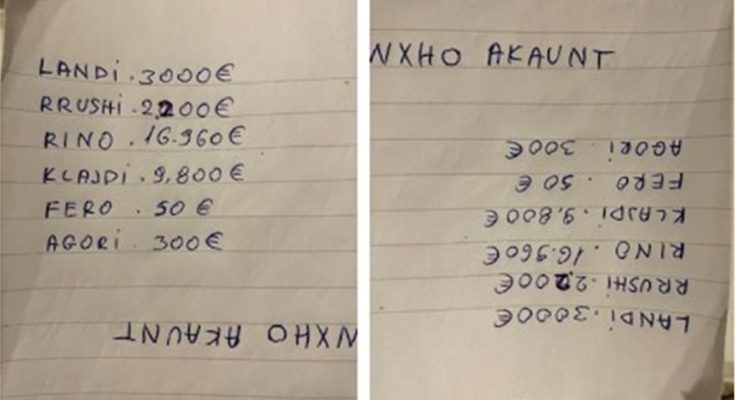 LANDi . 3000€
RRUSHi . 2,200€
RINO . 16.960€
KLAJDi . 9,800€
FERO . 50 €
AGORi . 300€
NXHO AKAUNT
NXHO AKAUNT
AGORi . 300€
FERO . 50 €
KLAJDi . 9,800€
RINO . 16.960€
RRUSHi . 2,200€
LANDi . 3000€